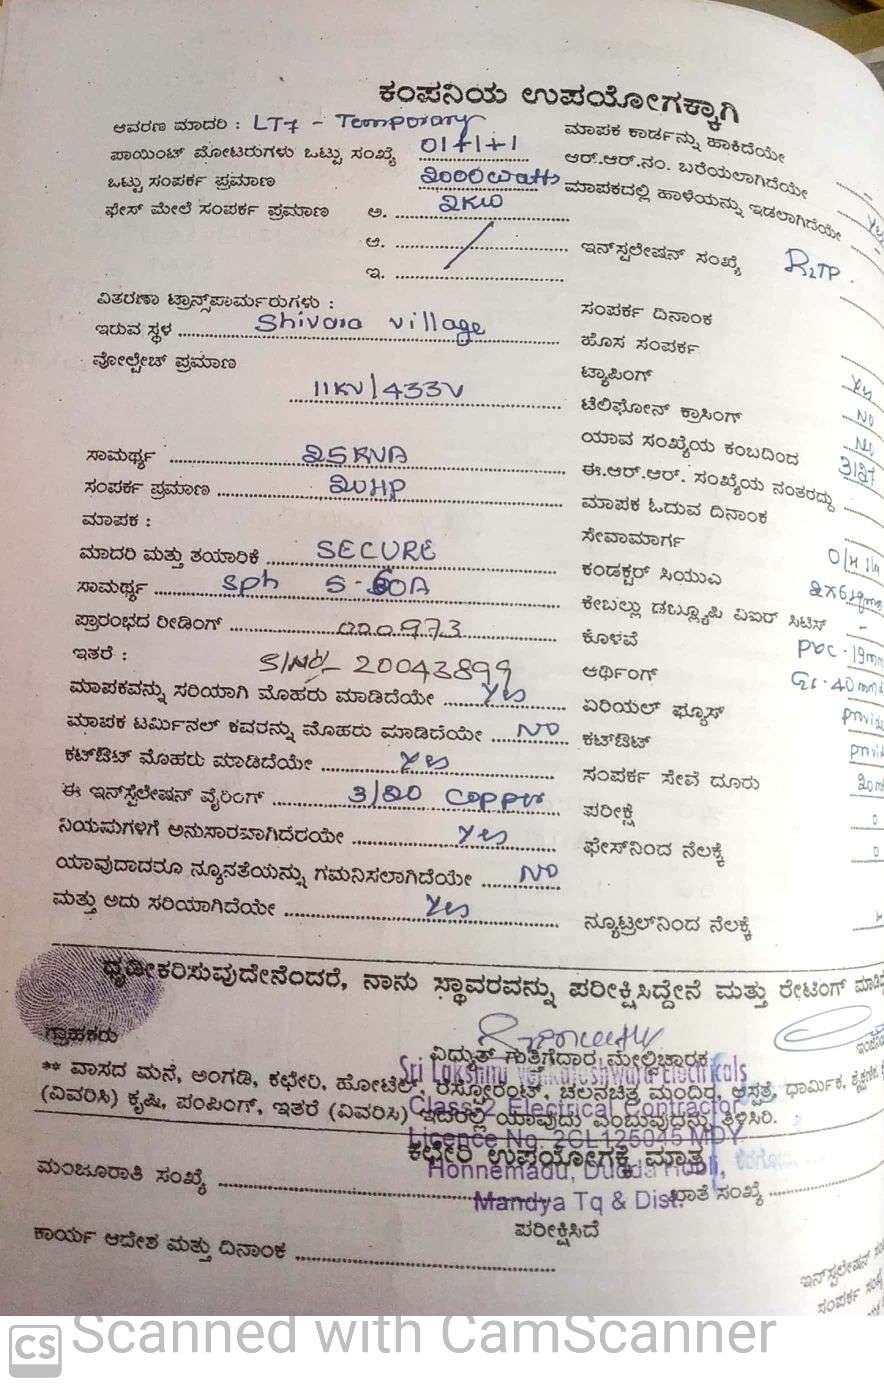 ಕಂಪನಿಯ ಉಪಯೋಗಕ್ಕಾಗಿ
ಆವರಣ ಮಾದರಿ : LT7 - Temporary
ಪಾಯಿಂಟ್ ಮೋಟರುಗಳು ಒಟ್ಟು ಸಂಖ್ಯೆ 01+1+1
ಒಟ್ಟು ಸಂಪರ್ಕ ಪ್ರಮಾಣ 2000 watts
ಫೇಸ್ ಮೇಲೆ ಸಂಪರ್ಕ ಪ್ರಮಾಣ ಅ. 2KW
ಆ.
ಇ.
ವಿತರಣಾ ಟ್ರಾನ್ಸ್‌ಪಾರ್ಮರುಗಳು :
ಇರುವ ಸ್ಥಳ Shivara village
ವೋಲ್ಟೇಚ್ ಪ್ರಮಾಣ
11KV/433V
ಸಾಮರ್ಥ್ಯ 25KVA
ಸಂಪರ್ಕ ಪ್ರಮಾಣ 20HP
ಮಾಪಕ :
ಮಾದರಿ ಮತ್ತು ತಯಾರಿಕೆ SECURE
ಸಾಮರ್ಥ್ಯ sph 5-60A
ಪ್ರಾರಂಭದ ರೀಡಿಂಗ್ 000973
ಇತರೆ : S/No/- 20043899
ಮಾಪಕವನ್ನು ಸರಿಯಾಗಿ ಮೊಹರು ಮಾಡಿದೆಯೇ Yes
ಮಾಪಕ ಟರ್ಮಿನಲ್ ಕವರನ್ನು ಮೊಹರು ಮಾಡಿದೆಯೇ NO
ಕಟ್‌ಔಟ್ ಮೊಹರು ಮಾಡಿದೆಯೇ Yes
ಈ ಇನ್‌ಸ್ಟಲೇಷನ್ ವೈರಿಂಗ್ 3/20 copper
ನಿಯಮಗಳಿಗೆ ಅನುಸಾರವಾಗಿದೆರಯೇ Yes
ಯಾವುದಾದರೂ ನ್ಯೂನತೆಯನ್ನು ಗಮನಿಸಲಾಗಿದೆಯೇ NO
ಮತ್ತು ಅದು ಸರಿಯಾಗಿದೆಯೇ Yes
ಮಾಪಕ ಕಾರ್ಡನ್ನು ಹಾಕಿದೆಯೇ
ಆರ್.ಆರ್.ನಂ. ಬರೆಯಲಾಗಿದೆಯೇ
ಮಾಪಕದಲ್ಲಿ ಹಾಳೆಯನ್ನು ಇಡಲಾಗಿದೆಯೇ
ಇನ್‌ಸ್ಟಲೇಷನ್ ಸಂಖ್ಯೆ
ಸಂಪರ್ಕ ದಿನಾಂಕ
ಹೊಸ ಸಂಪರ್ಕ Yes
ಟ್ಯಾಪಿಂಗ್ NO
ಟೆಲಿಫೋನ್ ಕ್ರಾಸಿಂಗ್ NO
ಯಾವ ಸಂಖ್ಯೆಯ ಕಂಬದಿಂದ
ಈ.ಆರ್.ಆರ್. ಸಂಖ್ಯೆಯ ನಂತರದ್ದು
ಮಾಪಕ ಓದುವ ದಿನಾಂಕ
ಸೇವಾಮಾರ್ಗ
ಕಂಡಕ್ಟರ್ ಸಿಯುಎ
ಕೇಬಲ್ಲು ಡಬ್ಲ್ಯೂಪಿ ವಿಐರ್ ಸಿಟಿಸ್ -
ಕೊಳವೆ PVC-19mm
ಆರ್ಥಿಂಗ್ GI-40mm
ಏರಿಯಲ್ ಫ್ಯೂಸ್
ಕಟ್‌ಔಟ್
ಸಂಪರ್ಕ ಸೇವೆ ದೂರು
ಪರೀಕ್ಷೆ
ಫೇಸ್‌ನಿಂದ ನೆಲಕ್ಕೆ
ನ್ಯೂಟ್ರಲ್‌ನಿಂದ ನೆಲಕ್ಕೆ
ಧೃಡೀಕರಿಸುವುದೇನೆಂದರೆ, ನಾನು ಸ್ಥಾವರವನ್ನು ಪರೀಕ್ಷಿಸಿದ್ದೇನೆ ಮತ್ತು ರೇಟಿಂಗ್
ಗ್ರಾಹಕರು
ವಿದ್ಯುತ್ ಗುತ್ತಿಗೆದಾರ ಮೇಲ್ವಿಚಾರಕ
Sri Lakshmi Venkateshwara Electricals
** ವಾಸದ ಮನೆ, ಅಂಗಡಿ, ಕಛೇರಿ, ಹೋಟೆಲ್, ರೆಸ್ಟೋರೆಂಟ್, ಚಲನಚಿತ್ರ ಮಂದಿರ, ಆಸ್ಪತ್ರೆ, ಧಾರ್ಮಿಕ,
Class-2 Electrical Contractor
(ವಿವರಿಸಿ) ಕೃಷಿ, ಪಂಪಿಂಗ್, ಇತರೆ (ವಿವರಿಸಿ) ಇದರಲ್ಲಿ ಯಾವುದು ಎಂಬುವುದನ್ನು ತಿಳಿಸಿರಿ.
Licence No. 2CL125045 MDY
ಕಛೇರಿ ಉಪಯೋಗಕ್ಕೆ ಮಾತ್ರ
Honnemadu, Dudda Hobli,
ಮಂಜೂರಾತಿ ಸಂಖ್ಯೆ
Mandya Tq & Dist.
ಖಾತೆ ಸಂಖ್ಯೆ
ಪರೀಕ್ಷಿಸಿದೆ
ಕಾರ್ಯ ಆದೇಶ ಮತ್ತು ದಿನಾಂಕ
ಇನ್‌ಸ್ಟಲೇಷನ್
ಸಂಪರ್ಕ
CS Scanned with CamScanner